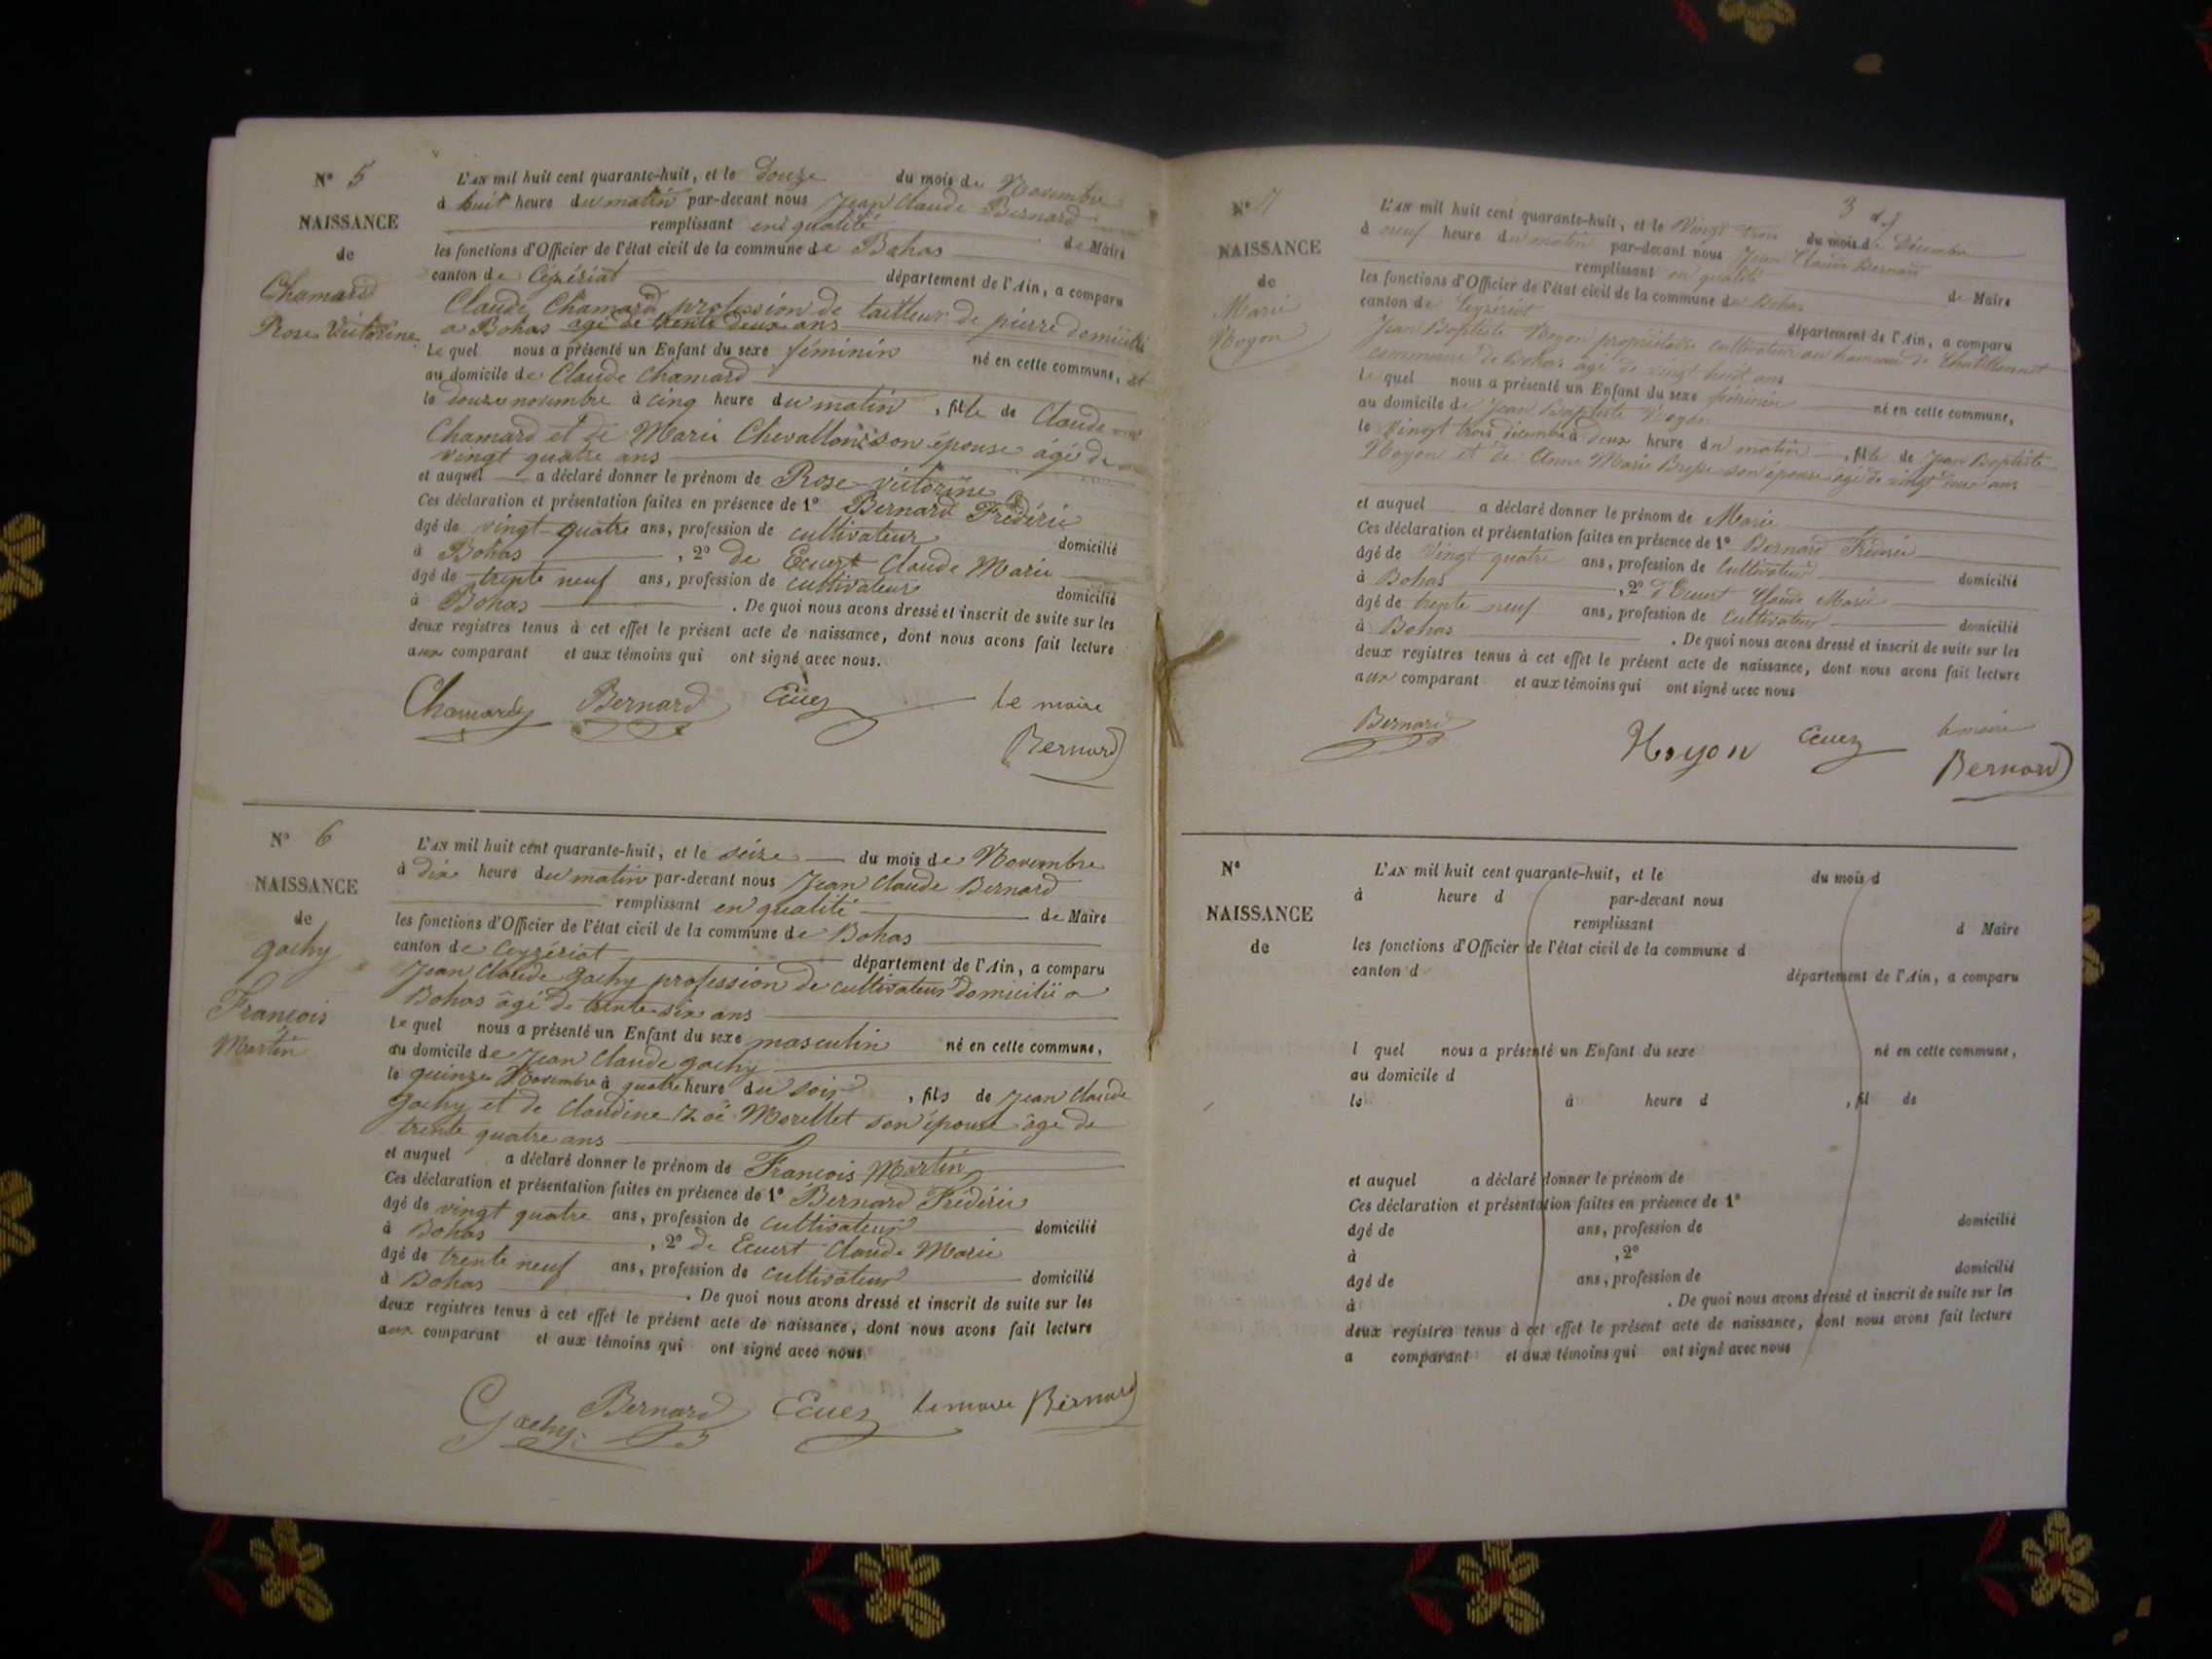 N° 5
NAISSANCE
de
Chamard
Rose Victorine
L'AN mil huit cent quarante-huit, et le douze du mois de Novembre
à huit heure du matin par-devant nous Jean Claude Bernard
remplissant en qualité de Maire
les fonctions d'Officier de l'état civil de la commune de Bohas
canton de Ceyzériat département de l'Ain, a comparu
Claude Chamard profession de tailleur de pierre domicilié
a Bohas agé de trente deux ans
Le quel nous a présenté un Enfant du sexe féminin né en cette commune, et
au domicile de Claude Chamard
le douze novembre à cinq heure du matin, fille de Claude
Chamard et de Marie son épouse âgé de
vingt quatre ans
et auquel a déclaré donner le prénom de Rose-victorine
Ces déclaration et présentation faites en présence de 1° Bernard Frédéric
âgé de vingt-quatre ans, profession de cultivateur domicilié
à Bohas, 2° de Ecuert Claude Marie
âgé de trente neuf ans, profession de cultivateur domicilié
à Bohas. De quoi nous avons dressé et inscrit de suite sur les
deux registres tenus à cet effet le présent acte de naissance, dont nous avons fait lecture
aux comparant et aux témoins qui ont signé avec nous.
Chamard Bernard le maire
Bernard
N° 6
NAISSANCE
de
gachy
François
Martin
L'AN mil huit cent quarante-huit, et le seize du mois de Novembre
à dix heure du matin par-devant nous Jean Claude Bernard
remplissant en qualité de Maire
les fonctions d'Officier de l'état civil de la commune de Bohas
canton de Ceyzériat département de l'Ain, a comparu
Jean Claude gachy profession de cultivateur domicilié a
Bohas âgé de trente six ans
Le quel nous a présenté un Enfant du sexe masculin né en cette commune,
au domicile de Jean Claude gachy
le quinze Novembre à quatre heure du soir, fils de Jean Claude
gachy et de Claudine Zoé Morellet son épouse âgé de
trente quatre ans
et auquel a déclaré donner le prénom de François Martin
Ces déclaration et présentation faites en présence de 1° Bernard Frédéric
âgé de vingt quatre ans, profession de cultivateur domicilié
à Bohas, 2° de Ecuert Claude Marie
âgé de trente neuf ans, profession de cultivateur domicilié
à Bohas. De quoi nous avons dressé et inscrit de suite sur les
deux registres tenus à cet effet le présent acte de naissance, dont nous avons fait lecture
aux comparant et aux témoins qui ont signé avec nous
Gachy Bernard le maire Bernard
3
N° 7
NAISSANCE
de
Marie
Noyon
L'AN mil huit cent quarante-huit, et le Vingt trois du mois de Décembre
à neuf heure du matin par-devant nous Jean Claude Bernard
remplissant en qualité de Maire
les fonctions d'Officier de l'état civil de la commune de Bohas
canton de Ceyzériat département de l'Ain, a comparu
Jean Baptiste Noyon propriétaire cultivateur au hameau de
commune de Bohas agé de vingt huit ans
Le quel nous a présenté un Enfant du sexe féminin né en cette commune,
au domicile de Jean Baptiste Noyon
le Vingt trois décembre à deux heure du matin, fille de Jean Baptiste
Noyon et de Anne Marie son épouse agé de vingt deux ans
et auquel a déclaré donner le prénom de Marie
Ces déclaration et présentation faites en présence de 1° Bernard Frédéric
âgé de Vingt quatre ans, profession de Cultivateur domicilié
à Bohas, 2° d'Ecuert Claude Marie
âgé de trente neuf ans, profession de Cultivateur domicilié
à Bohas. De quoi nous avons dressé et inscrit de suite sur les
deux registres tenus à cet effet le présent acte de naissance, dont nous avons fait lecture
aux comparant et aux témoins qui ont signé avec nous
Bernard Noyon le maire
Bernard
N°
NAISSANCE
de
L'AN mil huit cent quarante-huit, et le du mois d
à heure d par-devant nous
remplissant d Maire
les fonctions d'Officier de l'état civil de la commune d
canton d département de l'Ain, a comparu
l quel nous a présenté un Enfant du sexe né en cette commune,
au domicile d
le à heure d , fil de
et auquel a déclaré donner le prénom de
Ces déclaration et présentation faites en présence de 1°
âgé de ans, profession de domicilié
à , 2°
âgé de ans, profession de domicilié
à . De quoi nous avons dressé et inscrit de suite sur les
deux registres tenus à cet effet le présent acte de naissance, dont nous avons fait lecture
a comparant et aux témoins qui ont signé avec nous